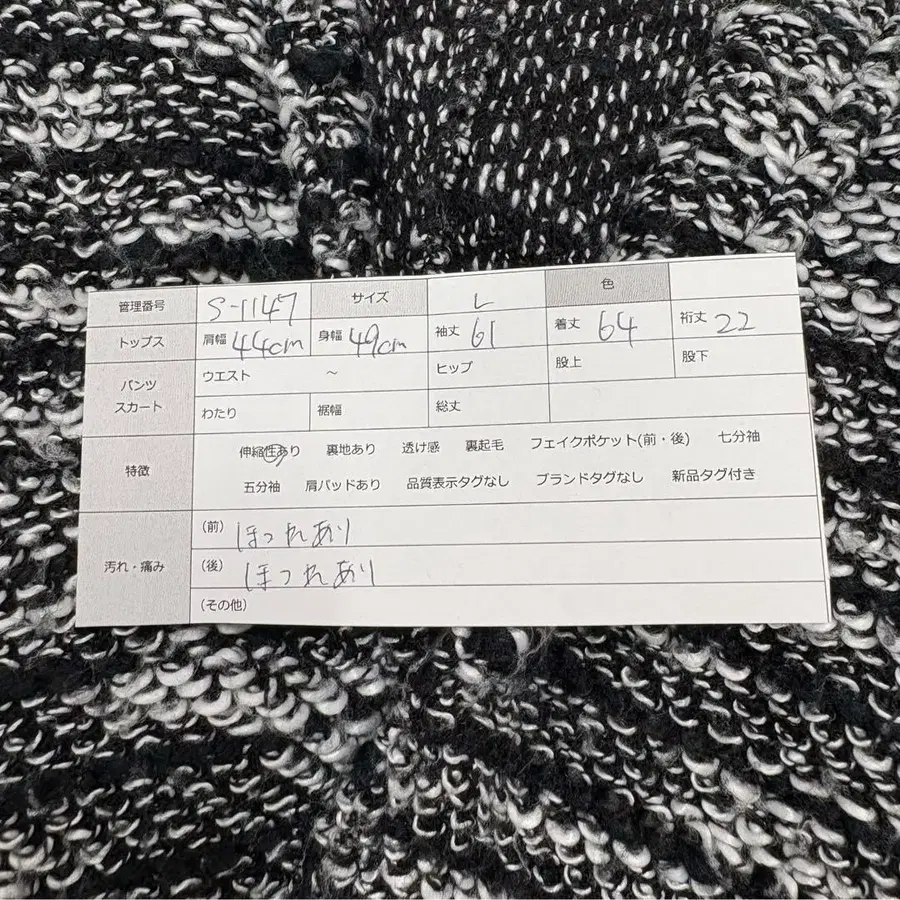 管理番号 S-1147 サイズ L 色
トップス 肩幅 44cm 身幅 49cm 袖丈 61 着丈 64 裄丈 22
パンツ スカート ウエスト ～ ヒップ 股上 股下
わたり 裾幅 総丈
特徴 伸縮性あり 裏地あり 透け感 裏起毛 フェイクポケット(前・後) 七分袖
五分袖 肩パッドあり 品質表示タグなし ブランドタグなし 新品タグ付き
汚れ・痛み (前) ほつれあり
(後) ほつれあり
(その他)